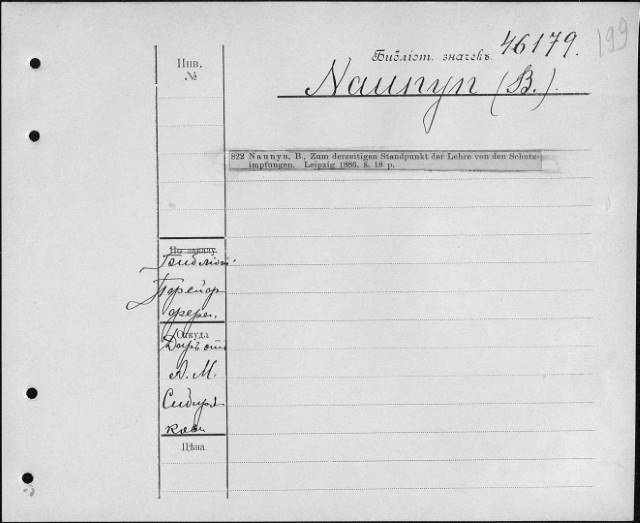 199
Библіот. значекъ. 46179.
Инв.
№
Naunyn (B.)
822 Naunyn, B., Zum derzeitigen Standpunkt der Lehre von den Schutz-
impfungen. Leipzig 1886. 8. 18 p.
По заказу.
Библіот.
Прейер
Откуда
Даръ отъ
А. М.
Сибиря
кова
Цѣна